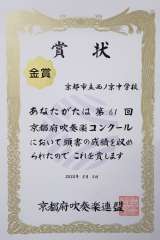 賞状
金賞
京都市立西ノ京中学校
あなたがたは第61回
京都府吹奏楽コンクール
において頭書の成績を収め
られたのでこれを賞します
京都府吹奏楽連盟